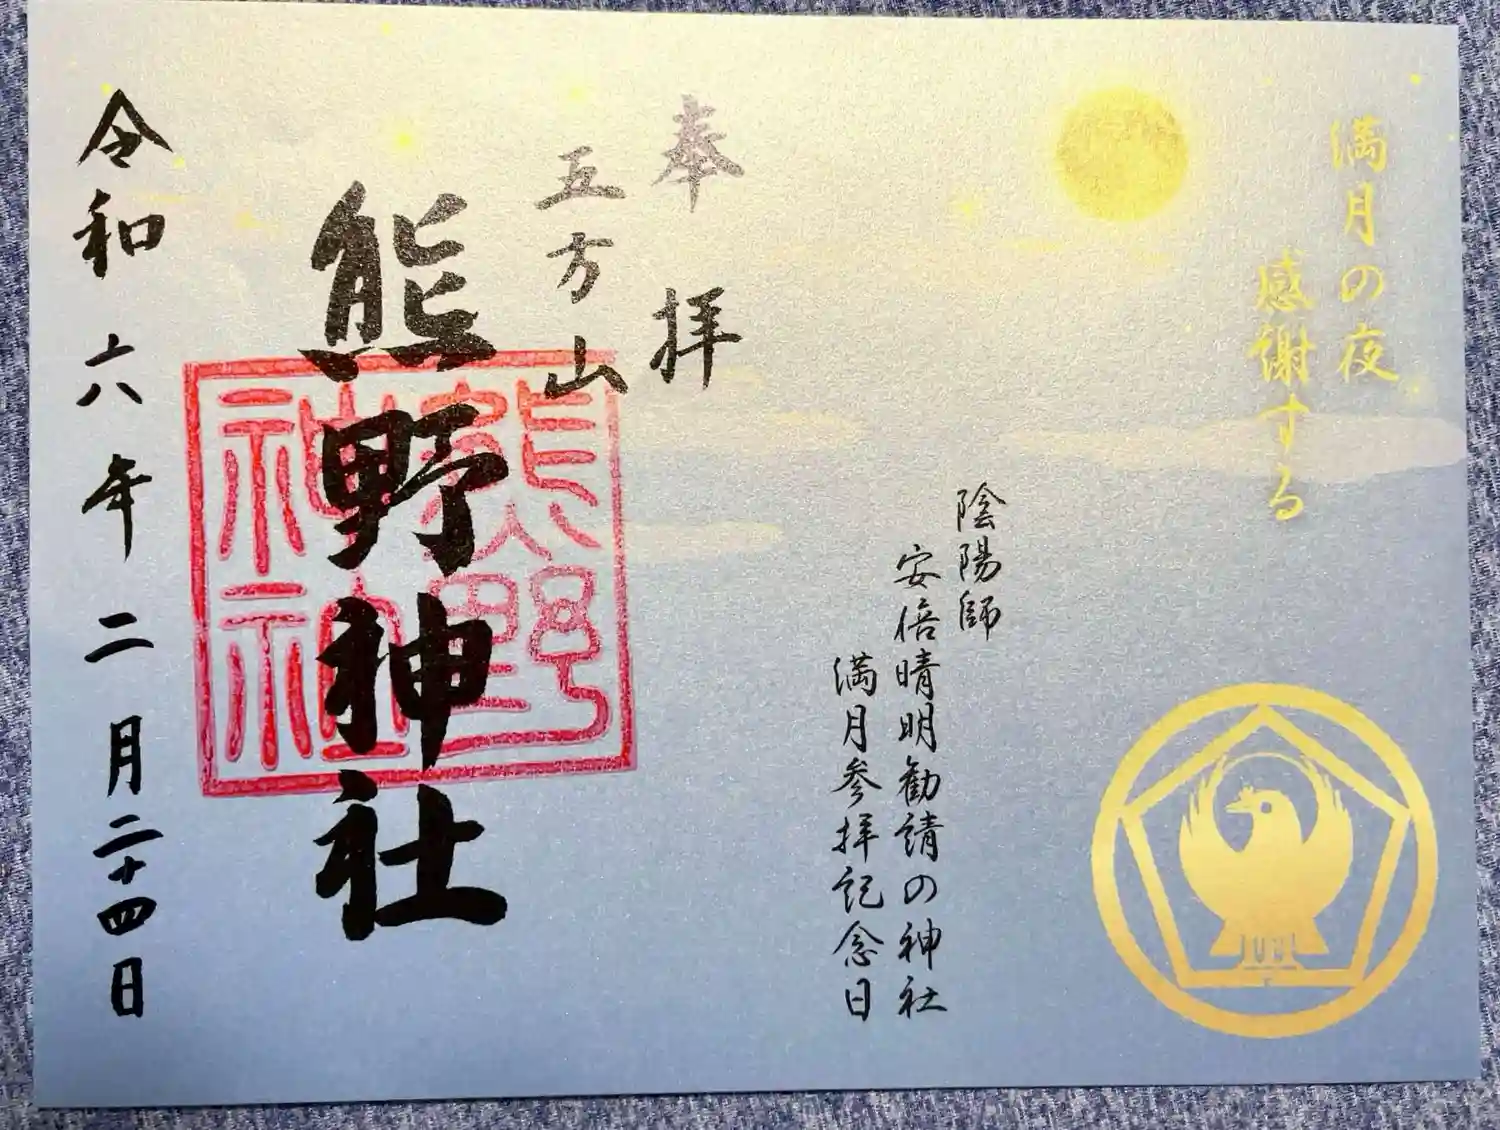 満月の夜
感謝する
陰陽師
安倍晴明勧請の神社
満月参拝記念日
奉拝
五方山
熊野神社
熊野
神社
令和六年二月二十四日